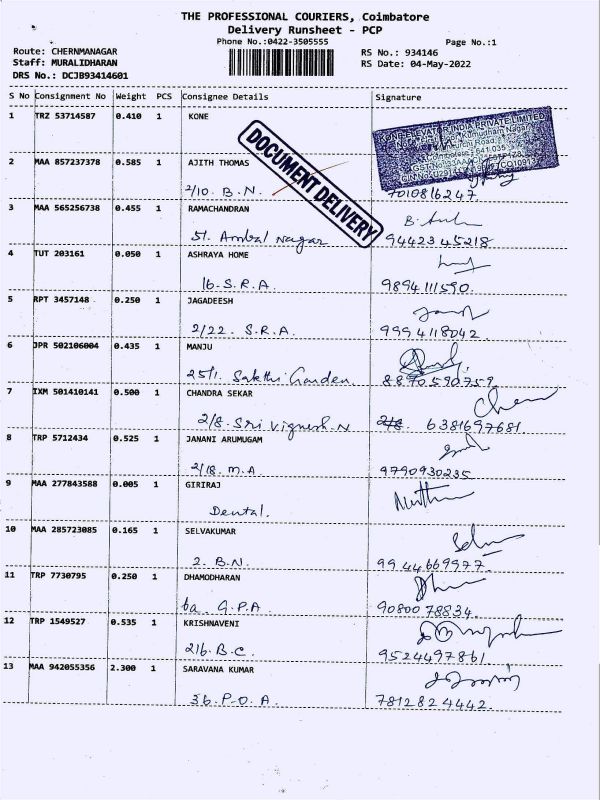 THE PROFESSIONAL COURIERS, Coimbatore
Delivery Runsheet - PCP
Phone No.:0422-3505555
Page No.:1
Route: CHERNMANAGAR
Staff: MURALIDHARAN
DRS No.: DCJB93414601
RS No.: 934146
RS Date: 04-May-2022
S No Consignment No Weight PCS Consignee Details Signature
1 TRZ 53714587 0.410 1 KONE
KONE ELEVATOR INDIA PRIVATE LIMITED
DOCUMENT DELIVERY
2 MAA 857237378 0.585 1 AJITH THOMAS
2/10. B.N. 7010816247
3 MAA 565256738 0.455 1 RAMACHANDRAN
51. Ambal Nagar 94423 45218
4 TUT 203161 0.050 1 ASHRAYA HOME
16. S.R.A. 9894111590.
5 RPT 3457148 0.250 1 JAGADEESH
2/22. S.R.A. 9994118042.
6 JPR 502106004 0.435 1 MANJU
25/1. Sakthi Garden. 8870590759.
7 IXM 501410141 0.500 1 CHANDRA SEKAR
2/8. Sri Vignesh. N 2/8. 6381697681
8 TRP 5712434 0.525 1 JANANI ARUMUGAM
2/18. M.A 9790930235
9 MAA 277843588 0.005 1 GIRIRAJ
Dental.
10 MAA 285723085 0.165 1 SELVAKUMAR
2. B.N. 9944669977.
11 TRP 7730795 0.250 1 DHAMODHARAN
6a. G.P.A 9080078834.
12 TRP 1549527 0.535 1 KRISHNAVENI
216. B.C. 9524497861
13 MAA 942055356 2.300 1 SARAVANA KUMAR
36. P.O.A. 7812824442.